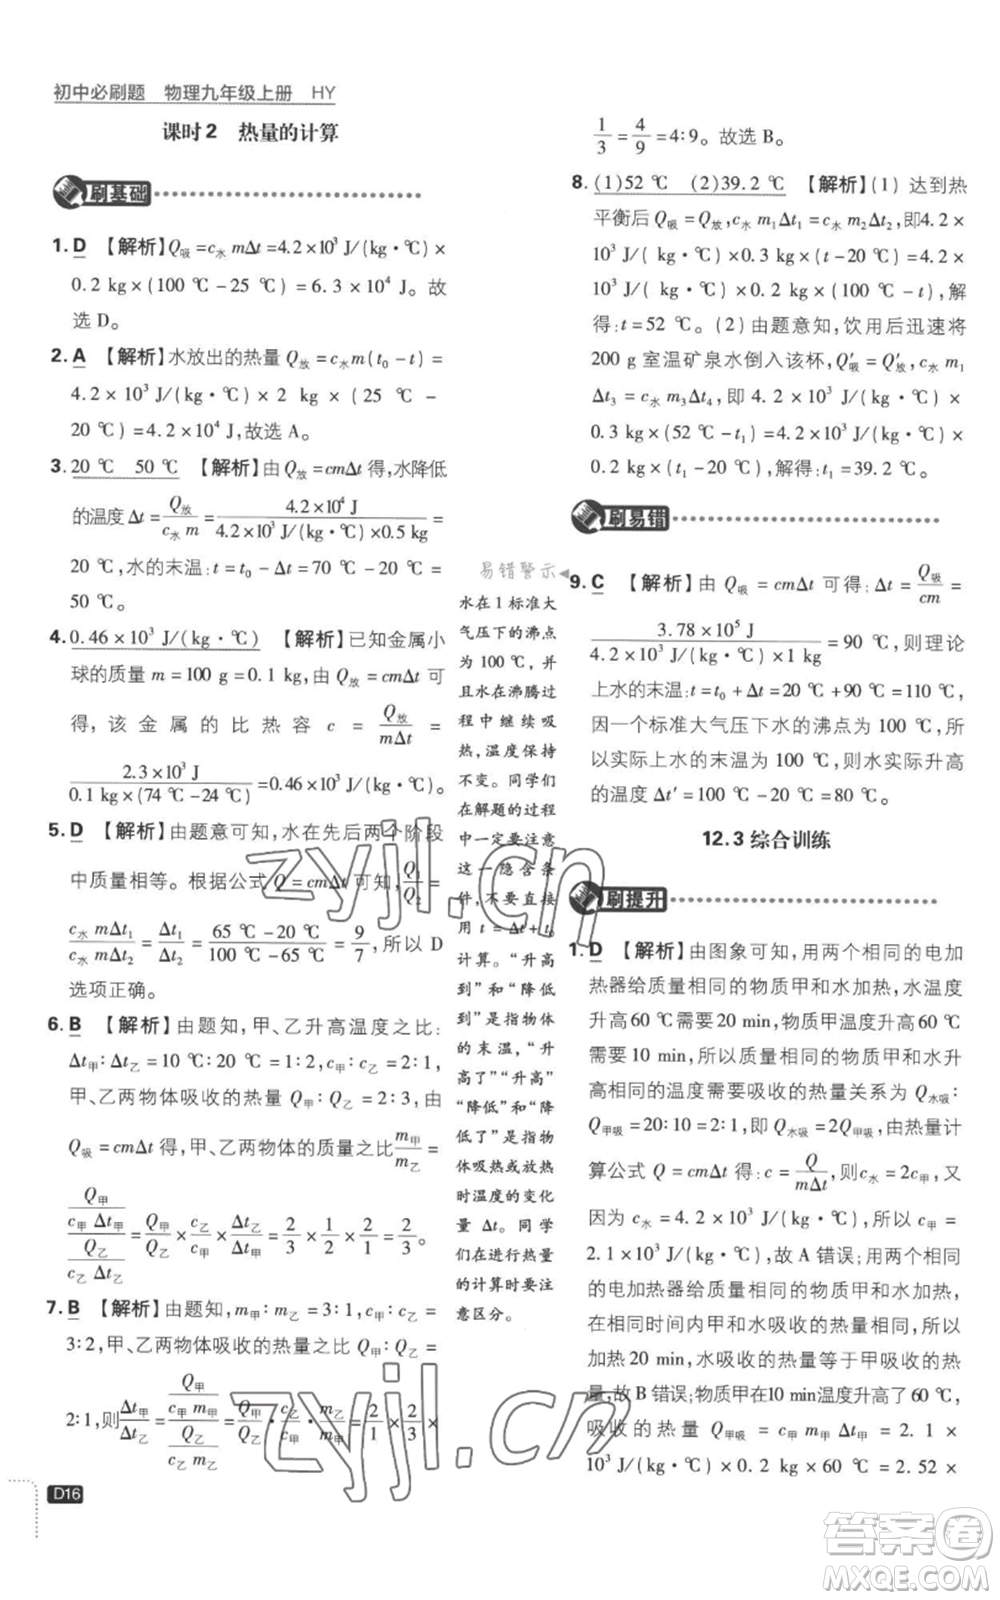 初中必刷题 物理九年级上册 HY
课时2 热量的计算
刷基础
1. D 【解析】Q吸=c水 mΔt=4.2×10³ J/(kg·℃)×
0.2 kg×(100 ℃-25 ℃)=6.3×10⁴ J。故
选 D。
2. A 【解析】水放出的热量 Q放=c水m(t₀-t)=
4.2×10³ J/(kg·℃)×2 kg×(25 ℃-
20 ℃)=4.2×10⁴ J,故选 A。
3. 20 ℃ 50 ℃ 【解析】由 Q放=cmΔt 得,水降低
的温度 Δt=Q放/(c水 m)=4.2×10⁴ J/(4.2×10³ J/(kg·℃)×0.5 kg)=
20 ℃,水的末温:t=t₀-Δt=70 ℃-20 ℃=
50 ℃。
4. 0.46×10³ J/(kg·℃) 【解析】已知金属小
球的质量 m=100 g=0.1 kg,由 Q放=cmΔt 可
得,该金属的比热容 c=Q放/(mΔt)=
2.3×10³ J/(0.1 kg×(74 ℃-24 ℃))=0.46×10³ J/(kg·℃)。
5. D 【解析】由题意可知,水在先后两个阶段
中质量相等。根据公式 Q=cmΔt 可知,Q₁/Q₂=
c水 mΔt₁/(c水 mΔt₂)=Δt₁/Δt₂=(65 ℃-20 ℃)/(100 ℃-65 ℃)=9/7,所以 D
选项正确。
6. B 【解析】由题知,甲、乙升高温度之比:
Δt甲:Δt乙=10 ℃:20 ℃=1:2,
甲、乙两物体吸收的热量 Q甲:Q乙=2:3,由
Q吸=cmΔt 得,甲、乙两物体的质量之比 m甲/m乙=
(Q甲/(c甲 Δt甲))/(Q乙/(c乙 Δt乙))=Q甲/Q乙×c乙/c甲×Δt乙/Δt甲=2/3×1/2×2/1=2/3。
7. B 【解析】由题知,m甲:m乙=3:1,c甲:c乙=
3:2,甲、乙两物体吸收的热量之比 Q甲:Q乙=
2:1,则Δt甲/Δt乙=(Q甲/(c甲 m甲))/(Q乙/(c乙 m乙))=Q甲/Q乙·c乙/c甲·m乙/m甲=2/1×2/3×
D16
易错警示
水在1标准大
气压下的沸点
为 100 ℃,并
且水在沸腾过
程中继续吸
热,温度保持
不变。同学们
在解题的过程
中一定要注意
这一隐含条
件,不要直接
用 t=Δt+t₀
计算。“升高
到”和“降低
到”是指物体
的末温,“升
高了”“升高”
“降低”和“降
低了”是指物
体吸热或放热
时温度的变化
量 Δt。同学
们在进行热量
的计算时要注
意区分。
1/3=4/9=4:9。故选 B。
8. (1)52 ℃ (2)39.2 ℃ 【解析】(1) 达到热
平衡后 Q吸=Q放,c水 m₁Δt₁=c水 m₂Δt₂,即4.2×
10³ J/(kg·℃)×0.3 kg×(t-20 ℃)=4.2×
10³ J/(kg·℃)×0.2 kg×(100 ℃-t),解
得:t=52 ℃。(2) 由题意知,饮用后迅速将
200 g 室温矿泉水倒入该杯,Q′吸=Q′放,c水 m₁
Δt₃=c水 m₃Δt₄,即 4.2×10³ J/(kg·℃)×
0.3 kg×(52 ℃-t₁)=4.2×10³ J/(kg·℃)×
0.2 kg×(t₁-20 ℃),解得:t₁=39.2 ℃。
刷易错
9. C 【解析】由 Q吸=cmΔt 可得:Δt=Q吸/cm=
3.78×10⁵ J/(4.2×10³ J/(kg·℃)×1 kg)=90 ℃,则理论
上水的末温:t=t₀+Δt=20 ℃+90 ℃=110 ℃,
因一个标准大气压下水的沸点为 100 ℃,所
以实际上水的末温为 100 ℃,则水实际升高
的温度 Δt′=100 ℃-20 ℃=80 ℃。
12.3 综合训练
刷提升
1. D 【解析】由图象可知,用两个相同的电加
热器给质量相同的物质甲和水加热,水温度
升高60 ℃需要20 min,物质甲温度升高60 ℃
需要 10 min,所以质量相同的物质甲和水升
高相同的温度需要吸收的热量关系为 Q水吸:
Q甲吸=20:10=2:1,即 Q水吸=2Q甲吸,由热量计
算公式 Q=cmΔt 得:c=Q/(mΔt),则c水=2c甲,又
因为 c水=4.2×10³ J/(kg·℃),所以 c甲=
2.1×10³ J/(kg·℃),故 A 错误;用两个相同
的电加热器给质量相同的物质甲和水加热,
在相同时间内甲和水吸收的热量相同,所以
加热 10 min,水吸收的热量等于甲吸收的热
量,故 B 错误;物质甲在10 min温度升高了60 ℃,
吸收的热量 Q甲吸=c甲 m甲 Δt甲=2.1×
10³ J/(kg·℃)×0.2 kg×60 ℃=2.52×
zyjl.cn
zyjl.cn
答案卷
MXQE.COM